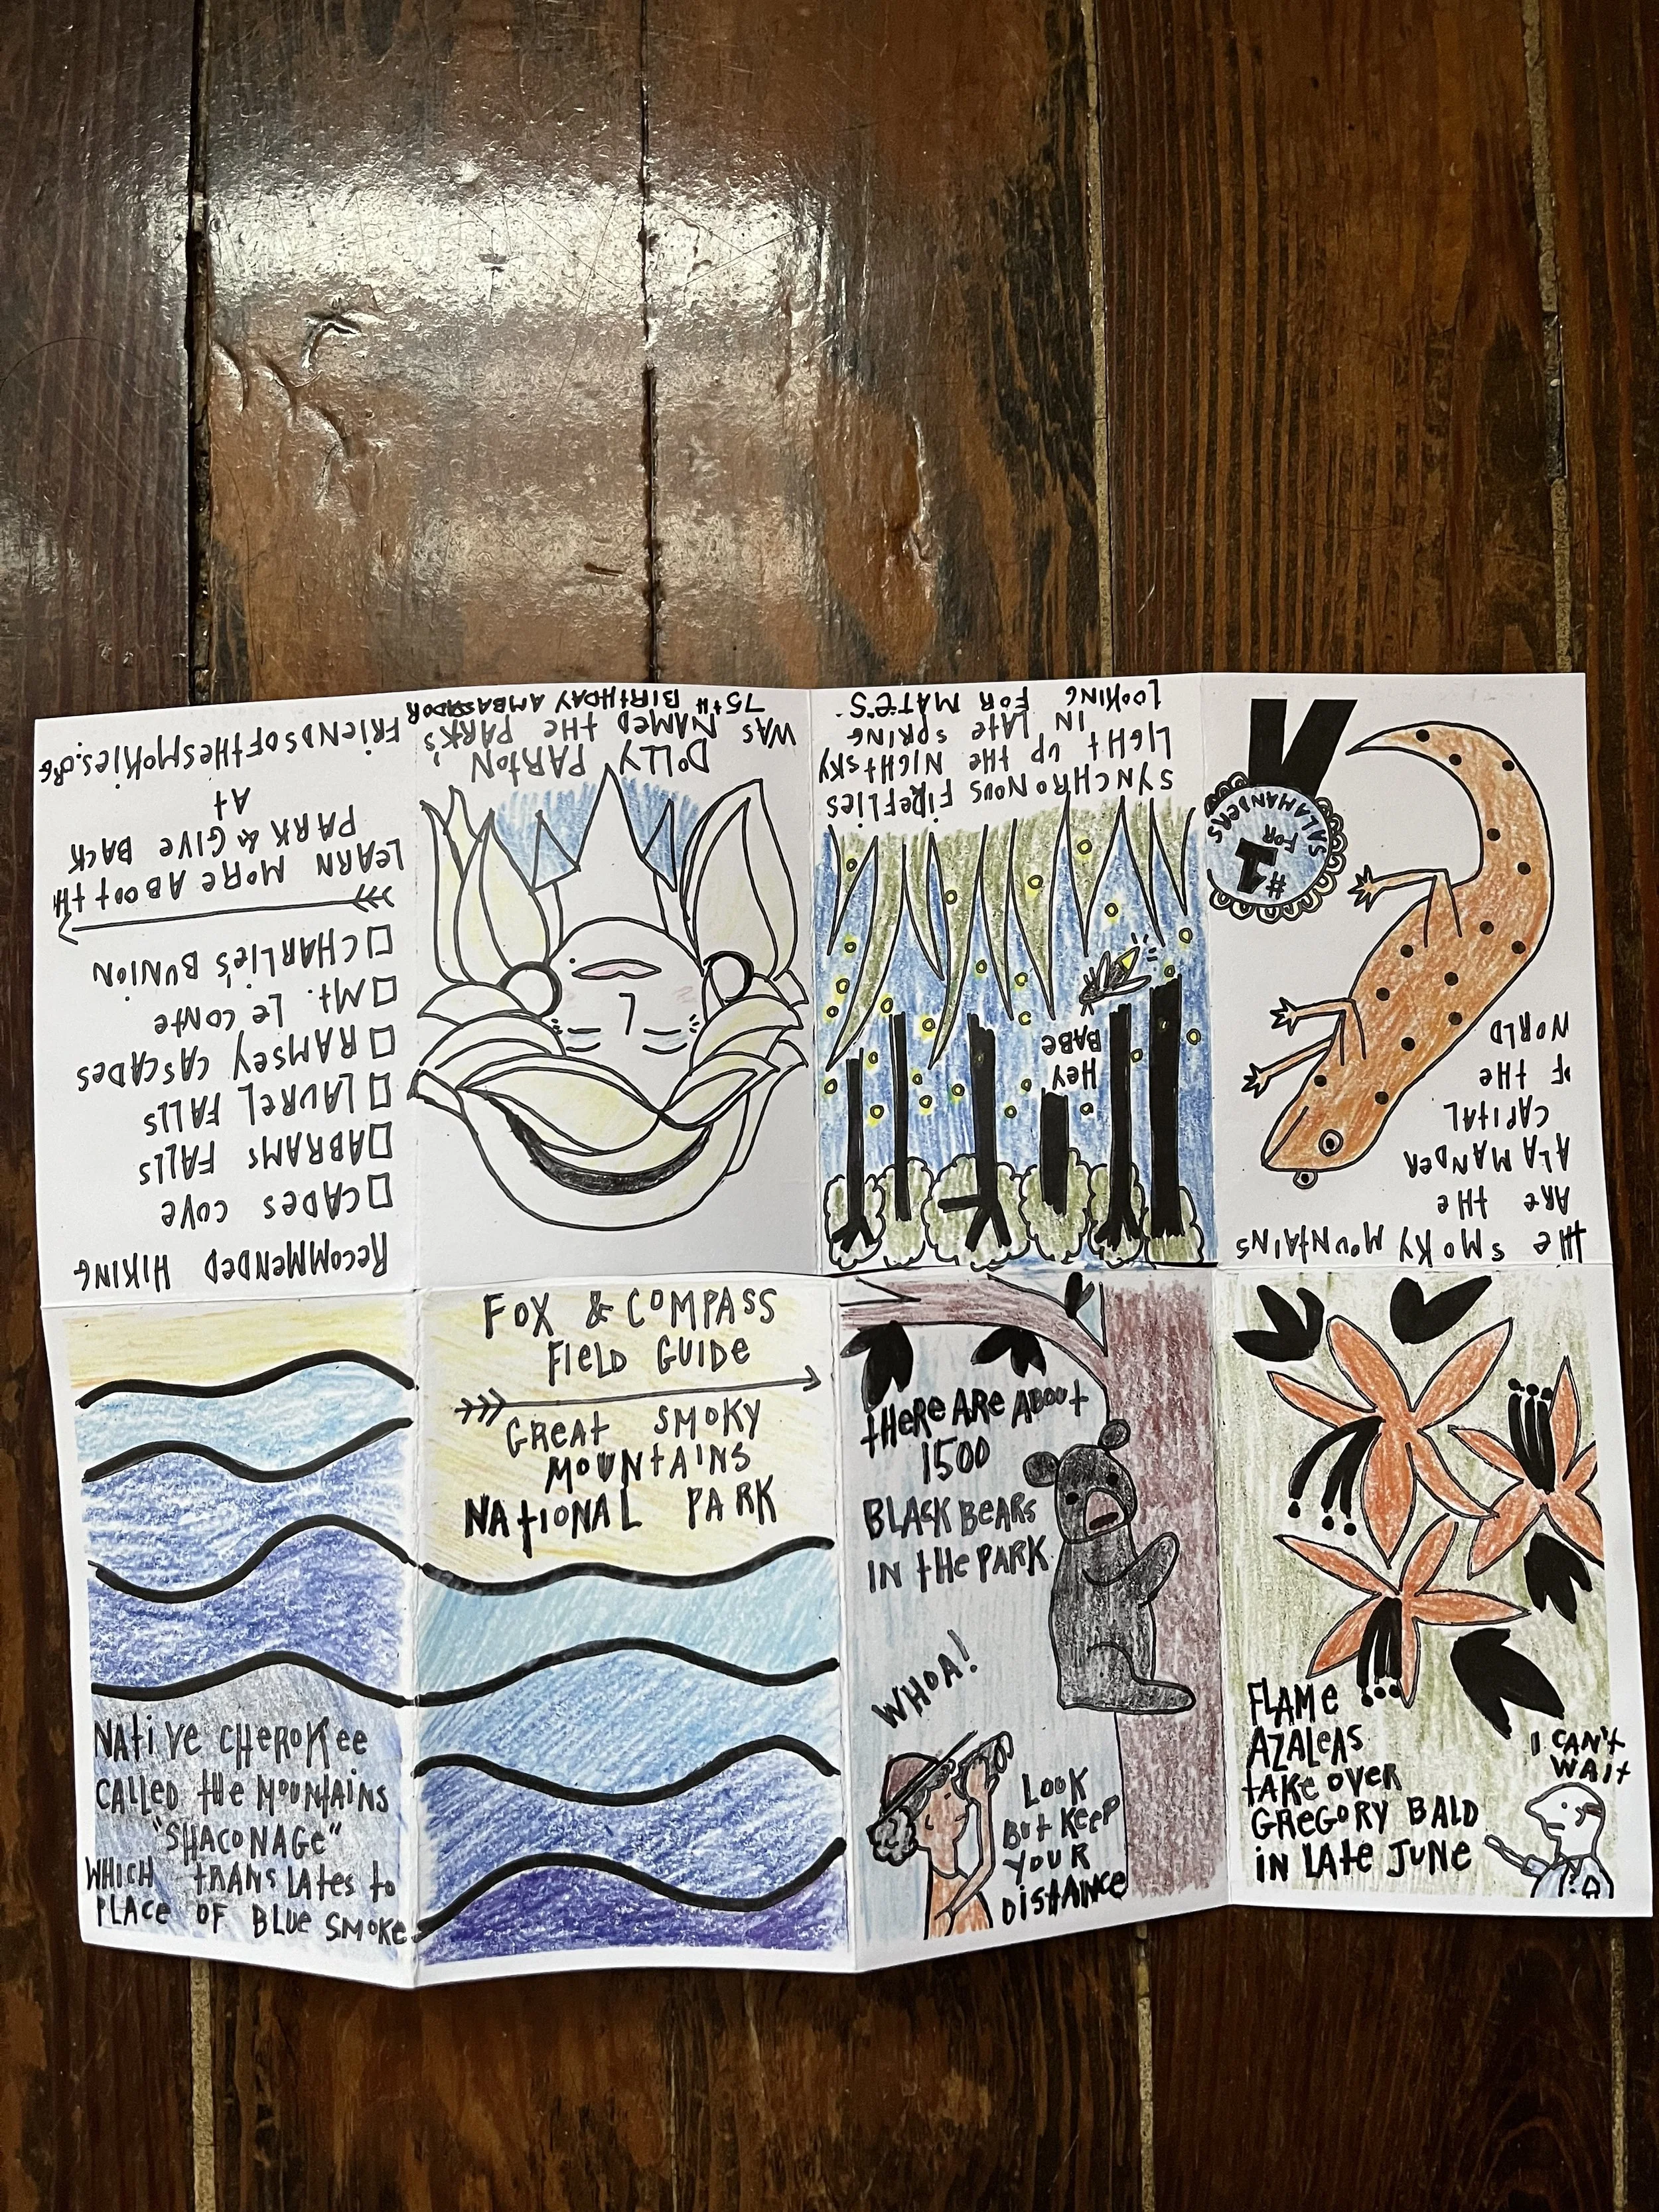 FOX & COMPASS
FIELD GUIDE
GREAT SMOKY
MOUNTAINS
NATIONAL PARK
THERE ARE ABOUT
1500
BLACK BEARS
IN THE PARK
WHOA!
LOOK
BUT KEEP
YOUR
DISTANCE
FLAME
AZALEAS
TAKE OVER
GREGORY BALD
IN LATE JUNE
I CAN'T
WAIT
THE SMOKY MOUNTAINS
ARE THE
ALAMANDER
CAPITAL
F THE
WORLD
#1
FOR
SALAMANDERS
HEY
BABE
SYNCHRONOUS FIREFLIES
LIGHT UP THE NIGHT SKY
IN LATE SPRING
LOOKING FOR MATE'S.
DOLLY PARTON
WAS NAMED THE PARK'S
75TH BIRTHDAY AMBASSADOR
RECOMMENDED HIKING
CADES COVE
ABRAMS FALLS
LAUREL FALLS
RAMSEY CASCADES
MT. LE CONTE
CHARLIE'S BUNION
LEARN MORE ABOUT TH
PARK & GIVE BACK
AT
FRIENDSOFTHESMOKIES.ORG
NATIVE CHEROKEE
CALLED THE MOUNTAINS
"SHACONAGE"
WHICH TRANSLATES TO
PLACE OF BLUE SMOKE